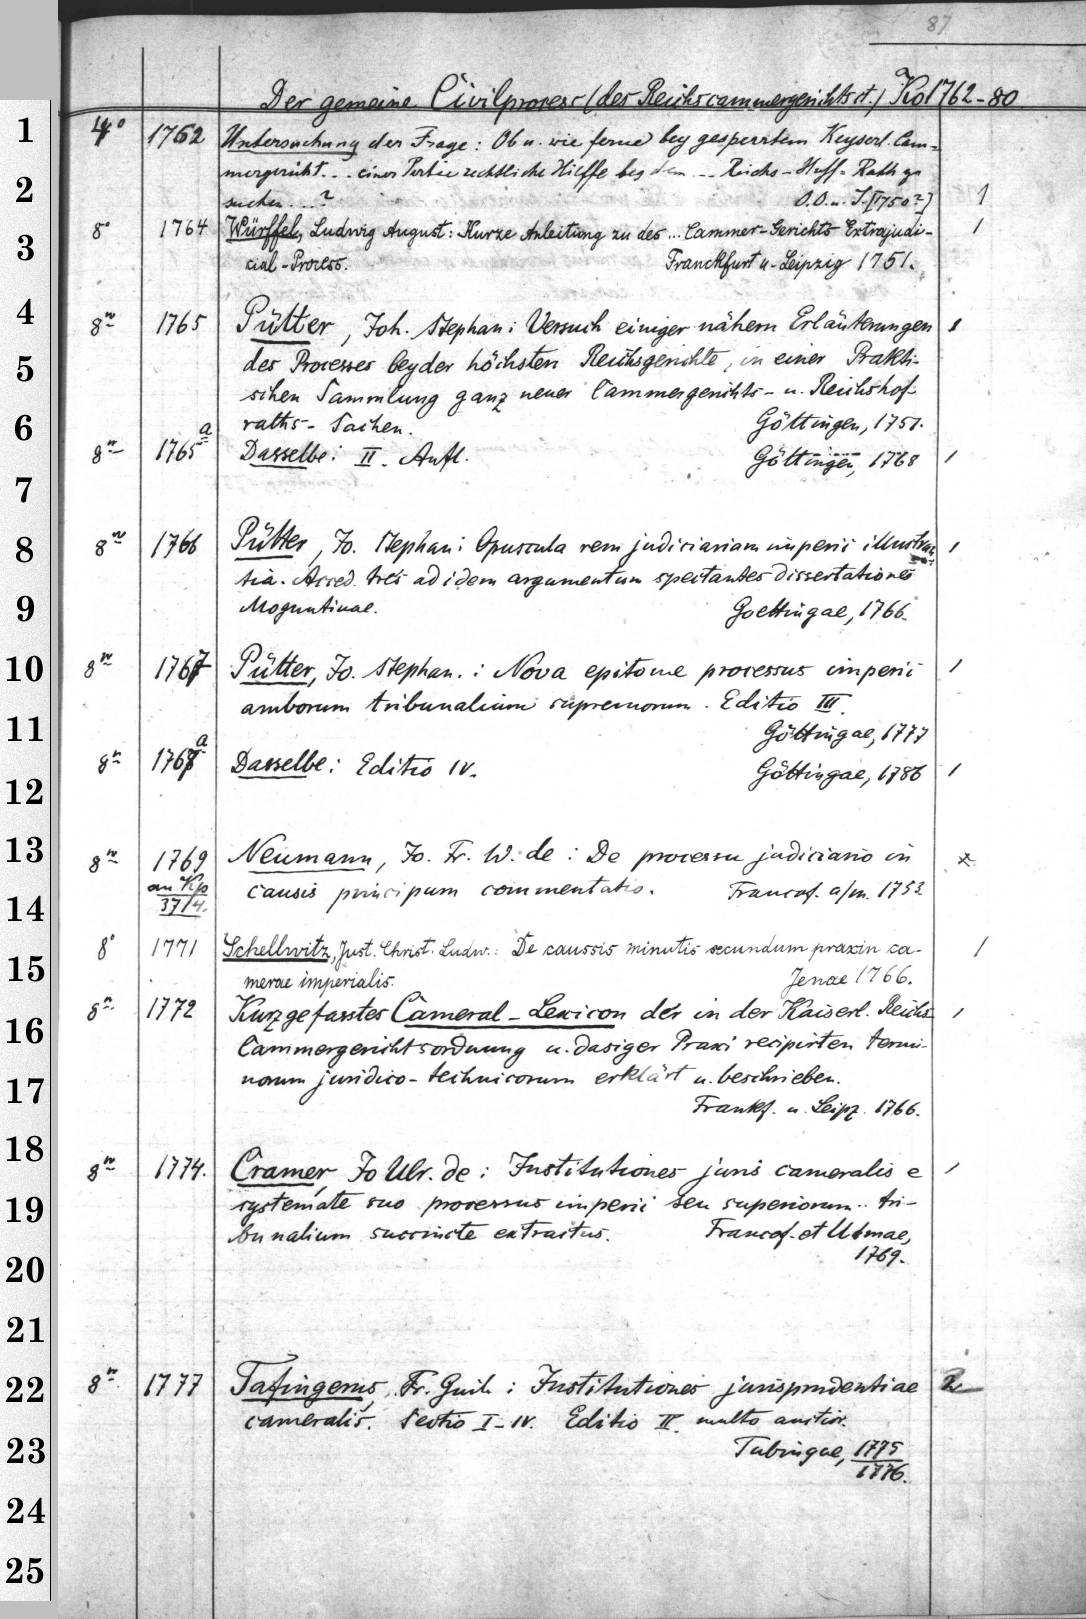 87
Der gemeine Civilprozess (des Reichscammergerichts rt.) Ko 1762-80
1 4° 1762 Untersuchung der Frage: Ob u. wie ferne bey gesperrtem Keyserl. Cam-
2 mergericht... einer Partie rechtliche Hilffe bey dem ... Reichs-Hoff-Rath zu
suchen ...? O.O.u.J. [1750?] 1
3 8° 1764 Würffel, Ludwig August: Kurze Anleitung zu des ... Cammer-Gerichts Extrajudi- 1
cial-Process. Franckfurt u. Leipzig 1751.
4 8° 1765 Pütter, Joh. Stephan: Versuch einiger nähern Erläuterungen 1
5 des Processes beyder höchsten Reichsgerichte, in einer Prakti-
schen Sammlung ganz neuer Cammergerichts- u. Reichshof-
6 raths-Sachen. Göttingen, 1751.
8° 1765a Dasselbe: II. Aufl. Göttingen, 1768 1
7
8 8° 1766 Pütter, Jo. Stephan: Opuscula rem judiciariam imperii illustran- 1
tia. Acced. tres ad idem argumentum spectantes dissertationes
9 Moguntinae. Goettingae, 1766.
10 8° 1767 Pütter, Jo. Stephan.: Nova epitome processus imperii 1
amborum tribunalium supremorum. Editio III.
11 Göttingae, 1777
8° 1767a Dasselbe: Editio IV. Göttingae, 1786 1
12
13 8° 1769 Neumann, Jo. Fr. W. de: De processu judiciario in
an Kp causis principum commentatio. Francof. a/m. 1752
14 37/4.
8° 1771 Schellwitz, Just. Christ. Ludw.: De caussis minutis secundum praxin ca- 1
15 merae imperialis. Jenae 1766.
16 8° 1772 Kurzgefasstes Cameral-Lexicon der in der Kaiserl. Reichs- 1
Cammergerichtsordnung u. dasiger Praxi recipirten termi-
17 norum juridico-technicorum erklärt u. beschrieben.
Frankf. u. Leipz. 1766.
18 8° 1774. Cramer, Jo Ulr. de: Institutiones juris cameralis e 1
19 systemate suo processus imperii seu superiorum .. tri-
bunalium succincte extractus. Francof. et Ulmae,
20 1769.
21
22 8° 1777 Tafingerus, Fr. Guil.: Institutiones jurisprudentiae 2
cameralis. Sectio I-IV. Editio II. multo auctior.
23 Tubingae, 1775
1776.
24
25